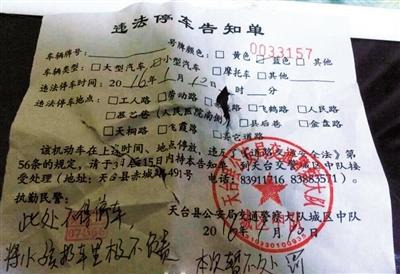 违法停车告知单
0033157
车辆牌号: 号牌颜色: □ 黄色 □ 蓝色 □ 其他
车辆类型: □ 大型汽车 小型汽车 □ 摩托车 □ 其他
违法停车时间: 2016年1月12日 时 分
违法停车地点: □ 工人路 □ 劳动路 □ 飞鹤路 □ 人民路
(人民医院南侧) □ 县后巷 □ 金盘路
□ 天桐路 □ 飞霞路 □ 其它道路
该机动车在上段时间、地点停放,违反《道路交通安全法》第
56条的规定,请于3日后15日内持本告知单,到天台交警城区中队接
受处理(地址:天台县赤城路491号 电话: 83911716 83883571)。
执勤民警:
天台县公安局交通警察大队城区中队
此处不得停车,
将小孩放车里极不负责
本次暂不处罚